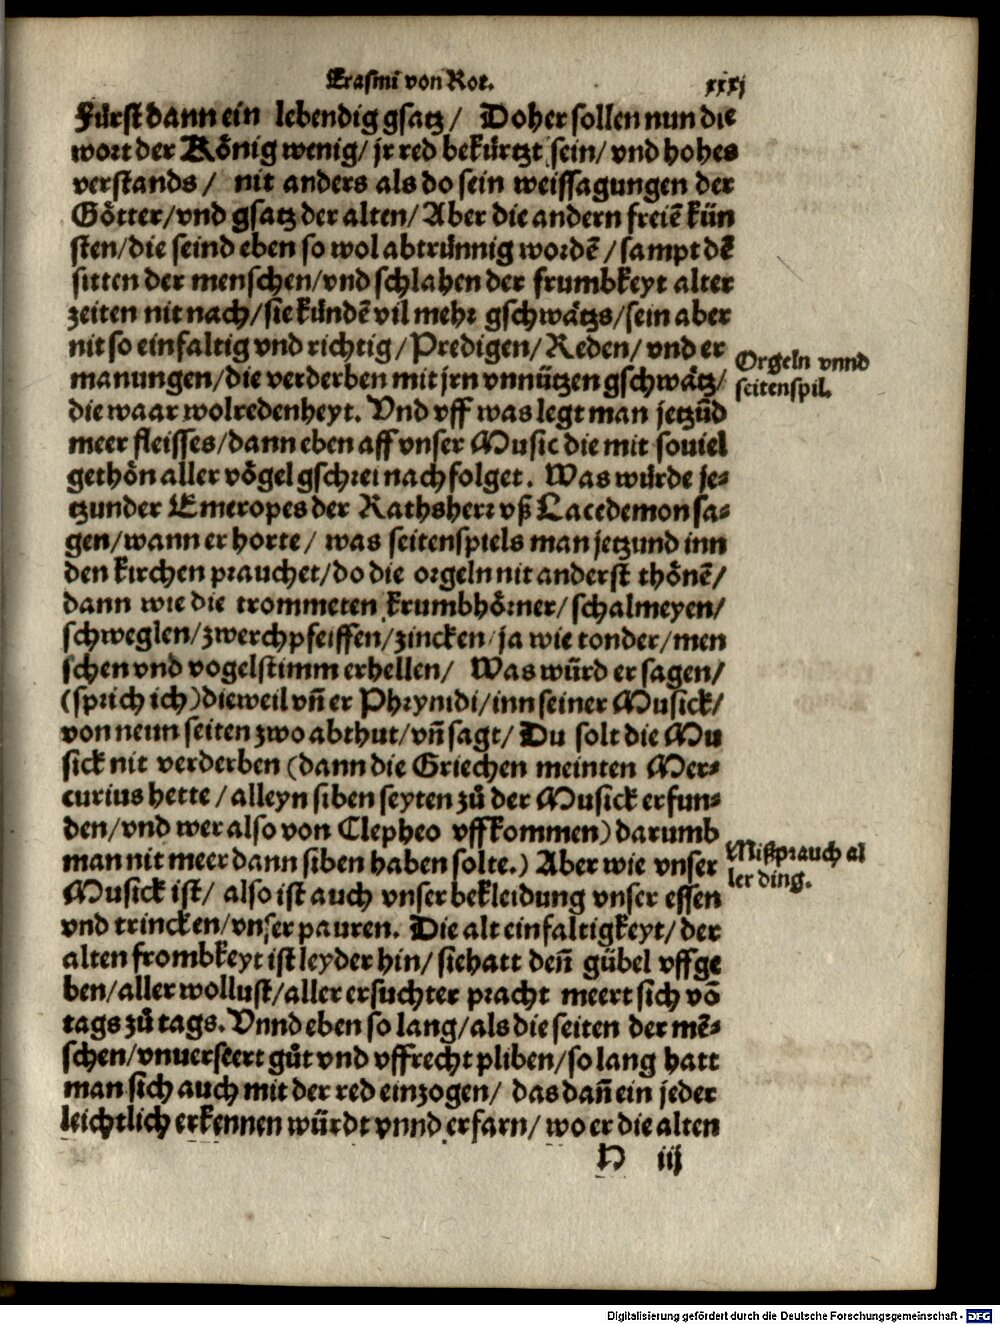 Erasmi von Rot. xxxj
Fürst dann ein lebendig gsatz / Doher sollen nun die
wort der König wenig / jr red bekürtzt sein / vnd hohes
verstands / nit anders als do sein weissagungen der
Götter / vnd gsatz der alten / Aber die andern freiē kün
sten / die seind eben so wol abtrünnig wordē / sampt dē
sitten der menschen / vnd schlahen der frumbkeyt alter
zeiten nit nach / sie kündē vil mehr gschwätzs / sein aber
nit so einfaltig vnd richtig / Predigen / Reden / vnd er
manungen / die verderben mit jrn vnnützen gschwätz /
Orgeln vnnd
seitenspil.
die waar wolredenheyt. Vnd vff was legt man jetzūd
meer fleisses / dann eben aff vnser Music die mit souiel
gethön aller vögel gschrei nachfolget. Was würde je⸗
tzunder Emeropes der Rathsherr vß Lacedemon sa⸗
gen / wann er horte / was seitenspiels man jetzund inn
den kirchen prauchet / do die orgeln nit anderst thönē /
dann wie die trommeten krumbhörner / schalmeyen /
schweglen / zwerchpfeiffen / zincken / ja wie tonder / men
schen vnd vogelstimm erhellen / Was würd er sagen /
(sprich ich) dieweil vn̄ er Phrynidi / inn seiner Musick /
von neun seiten zwo abthut / vn̄ sagt / Du solt die Mu
sick nit verderben (dann die Griechen meinten Mer⸗
curius hette / alleyn siben seyten zů der Musick erfun⸗
den / vnd wer also von Clepheo vffkommen) darumb
man nit meer dann siben haben solte.) Aber wie vnser
Mißprauch al
ler ding.
Musick ist / also ist auch vnser bekleidung vnser essen
vnd trincken / vnser pauren. Die alt einfaltigkeyt / der
alten frombkeyt ist leyder hin / sie hatt den̄ gübel vffge
ben / aller wollust / aller ersuchter pracht meert sich vō
tags zů tags. Vnnd eben so lang / als die seiten der mē⸗
schen / vnuerseert gůt vnd vffrecht pliben / so lang hatt
man sich auch mit der red einzogen / das dan̄ ein jeder
leichtlich erkennen würdt vnnd erfarn / wo er die alten
H iij
Digitalisierung gefördert durch die Deutsche Forschungsgemeinschaft - DFG